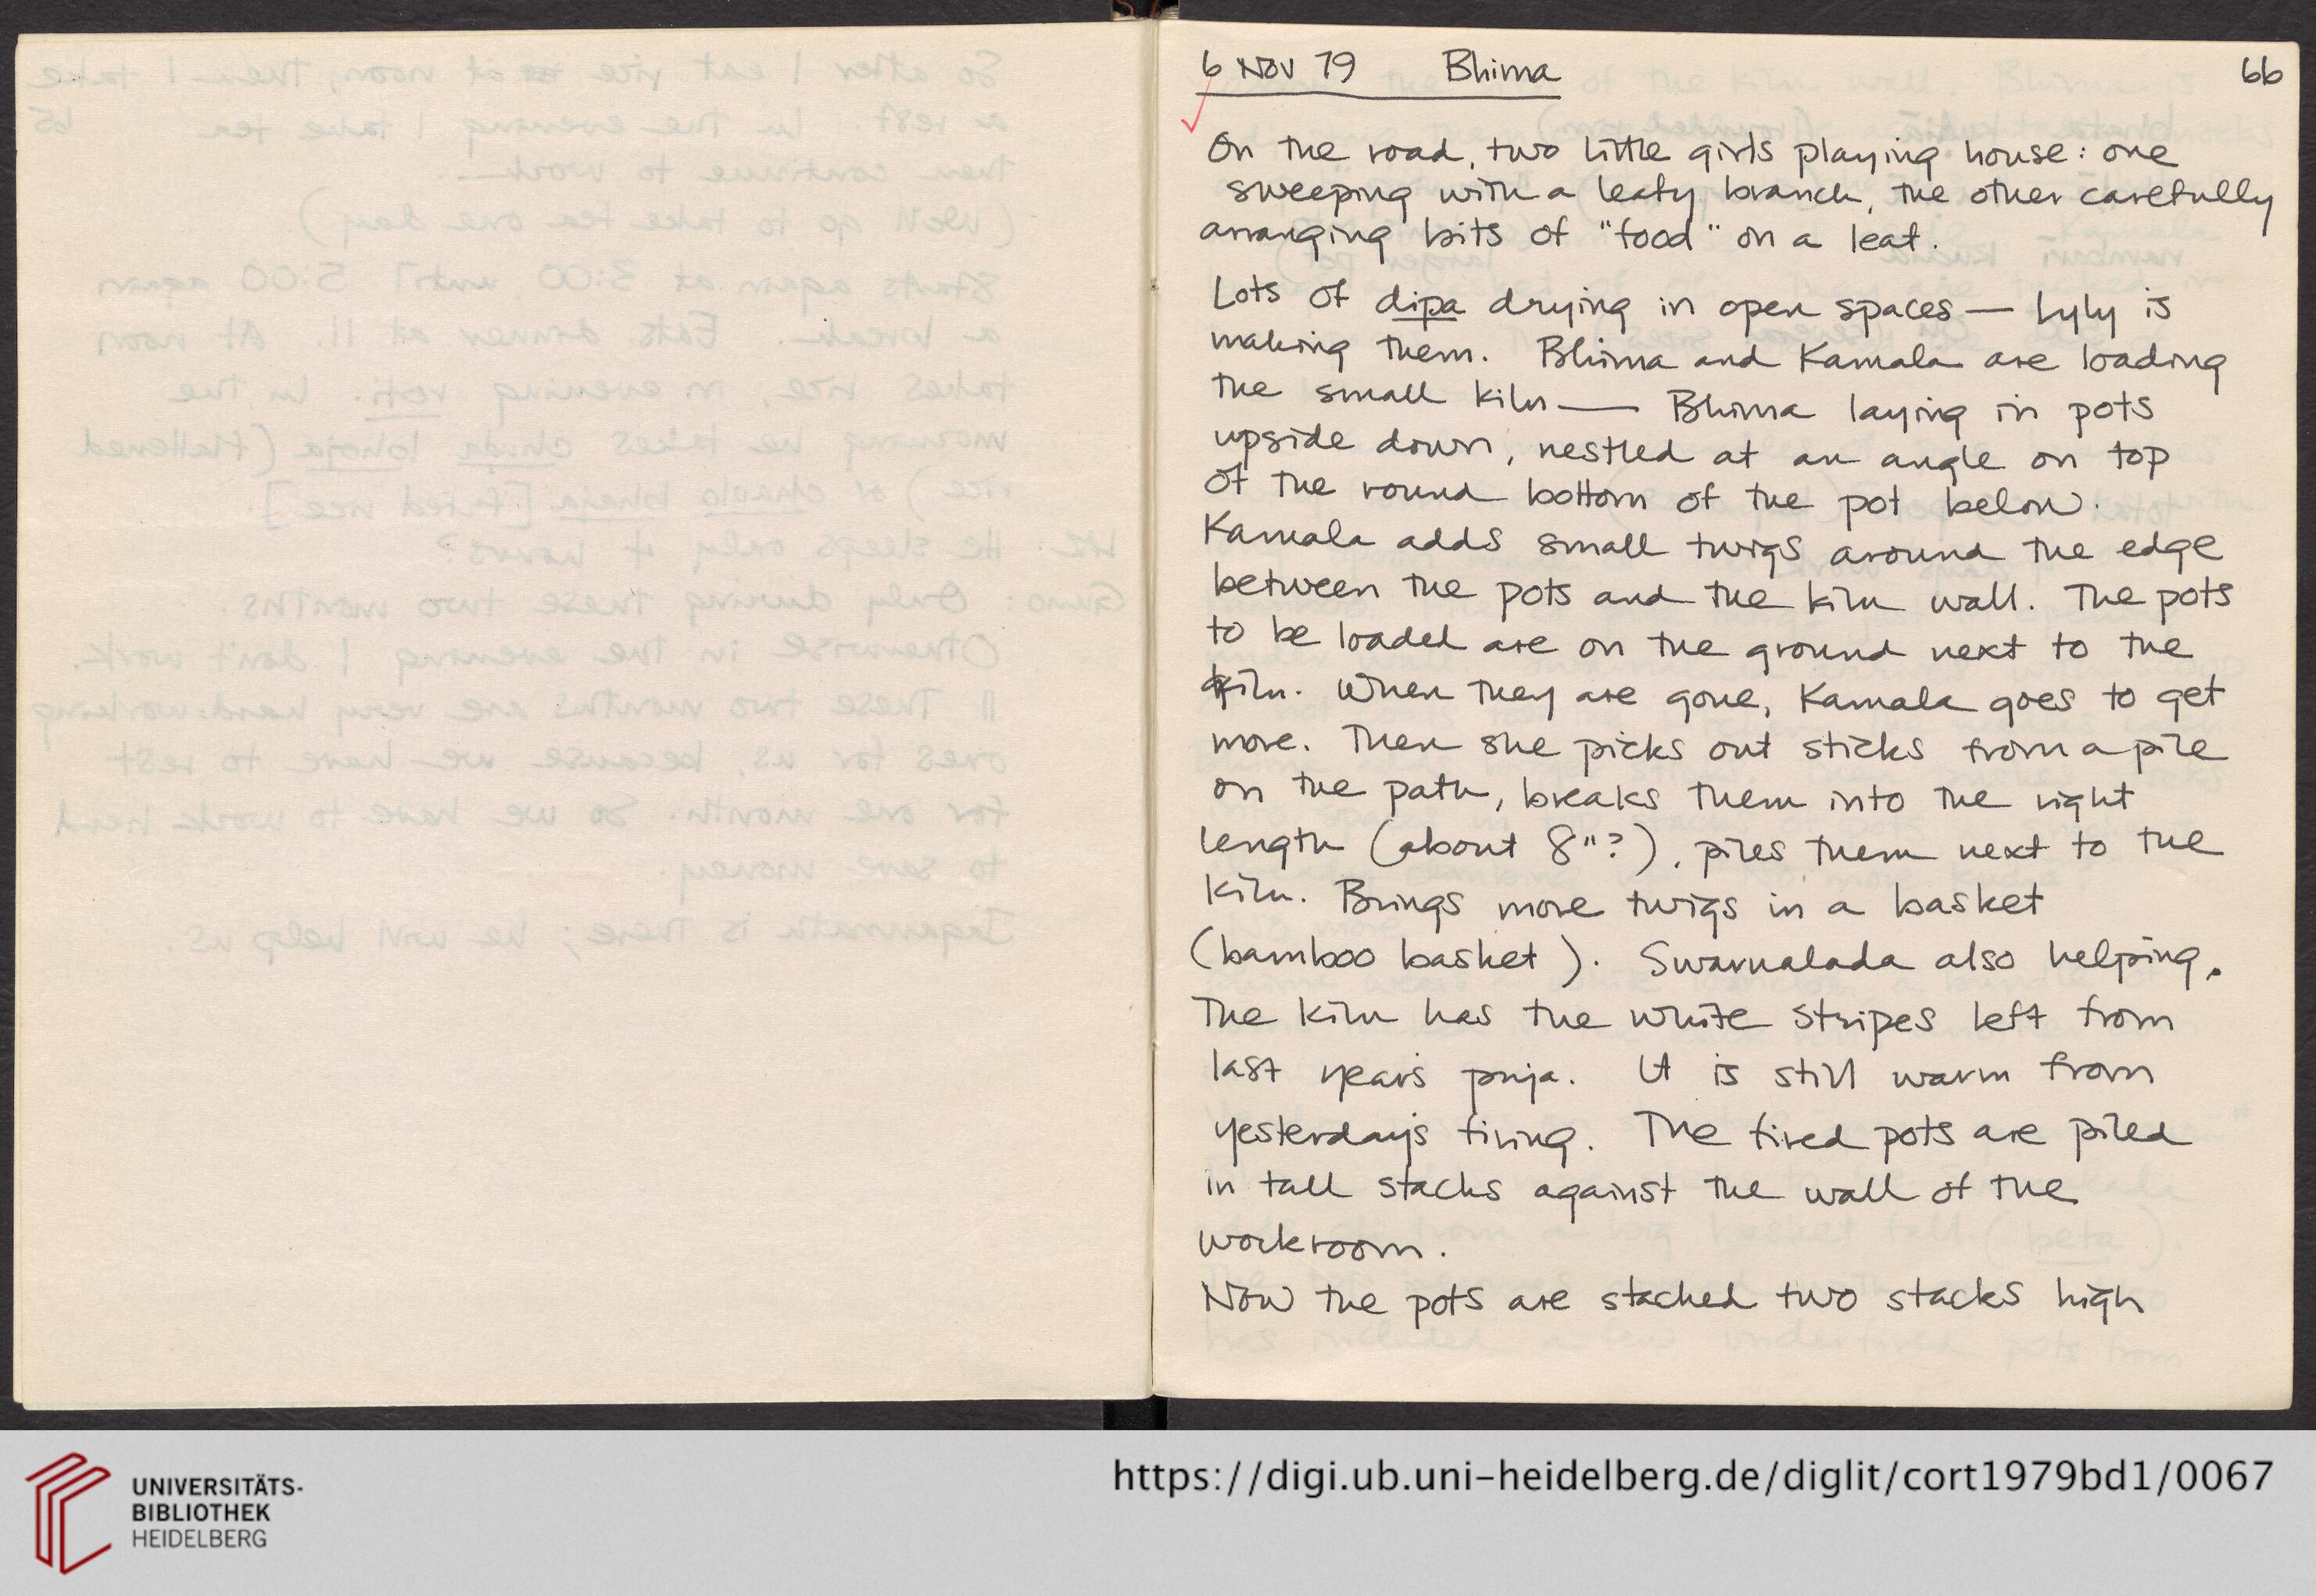 6 Nov 79 Bhima
66
On the road, two little girls playing house: one
sweeping with a leafy branch, the other carefully
arranging bits of "food" on a leaf.
Lots of dipa drying in open spaces — Lyly is
making them. Bhima and Kamala are loading
the small kiln — Bhima laying in pots
upside down, nestled at an angle on top
of the round bottom of the pot below.
Kamala adds small twigs around the edge
between the pots and the kiln wall. The pots
to be loaded are on the ground next to the
kiln. When they are gone, Kamala goes to get
more. Then she picks out sticks from a pile
on the path, breaks them into the right
length (about 8"?), piles them next to the
kiln. Brings more twigs in a basket
(bamboo basket). Swarnalada also helping.
The kiln has the white stripes left from
last year's puja. It is still warm from
yesterday's firing. The fired pots are piled
in tall stacks against the wall of the
workroom.
Now the pots are stacked two stacks high
UNIVERSITÄTS-
BIBLIOTHEK
HEIDELBERG
https://digi.ub.uni-heidelberg.de/diglit/cort1979bd1/0067